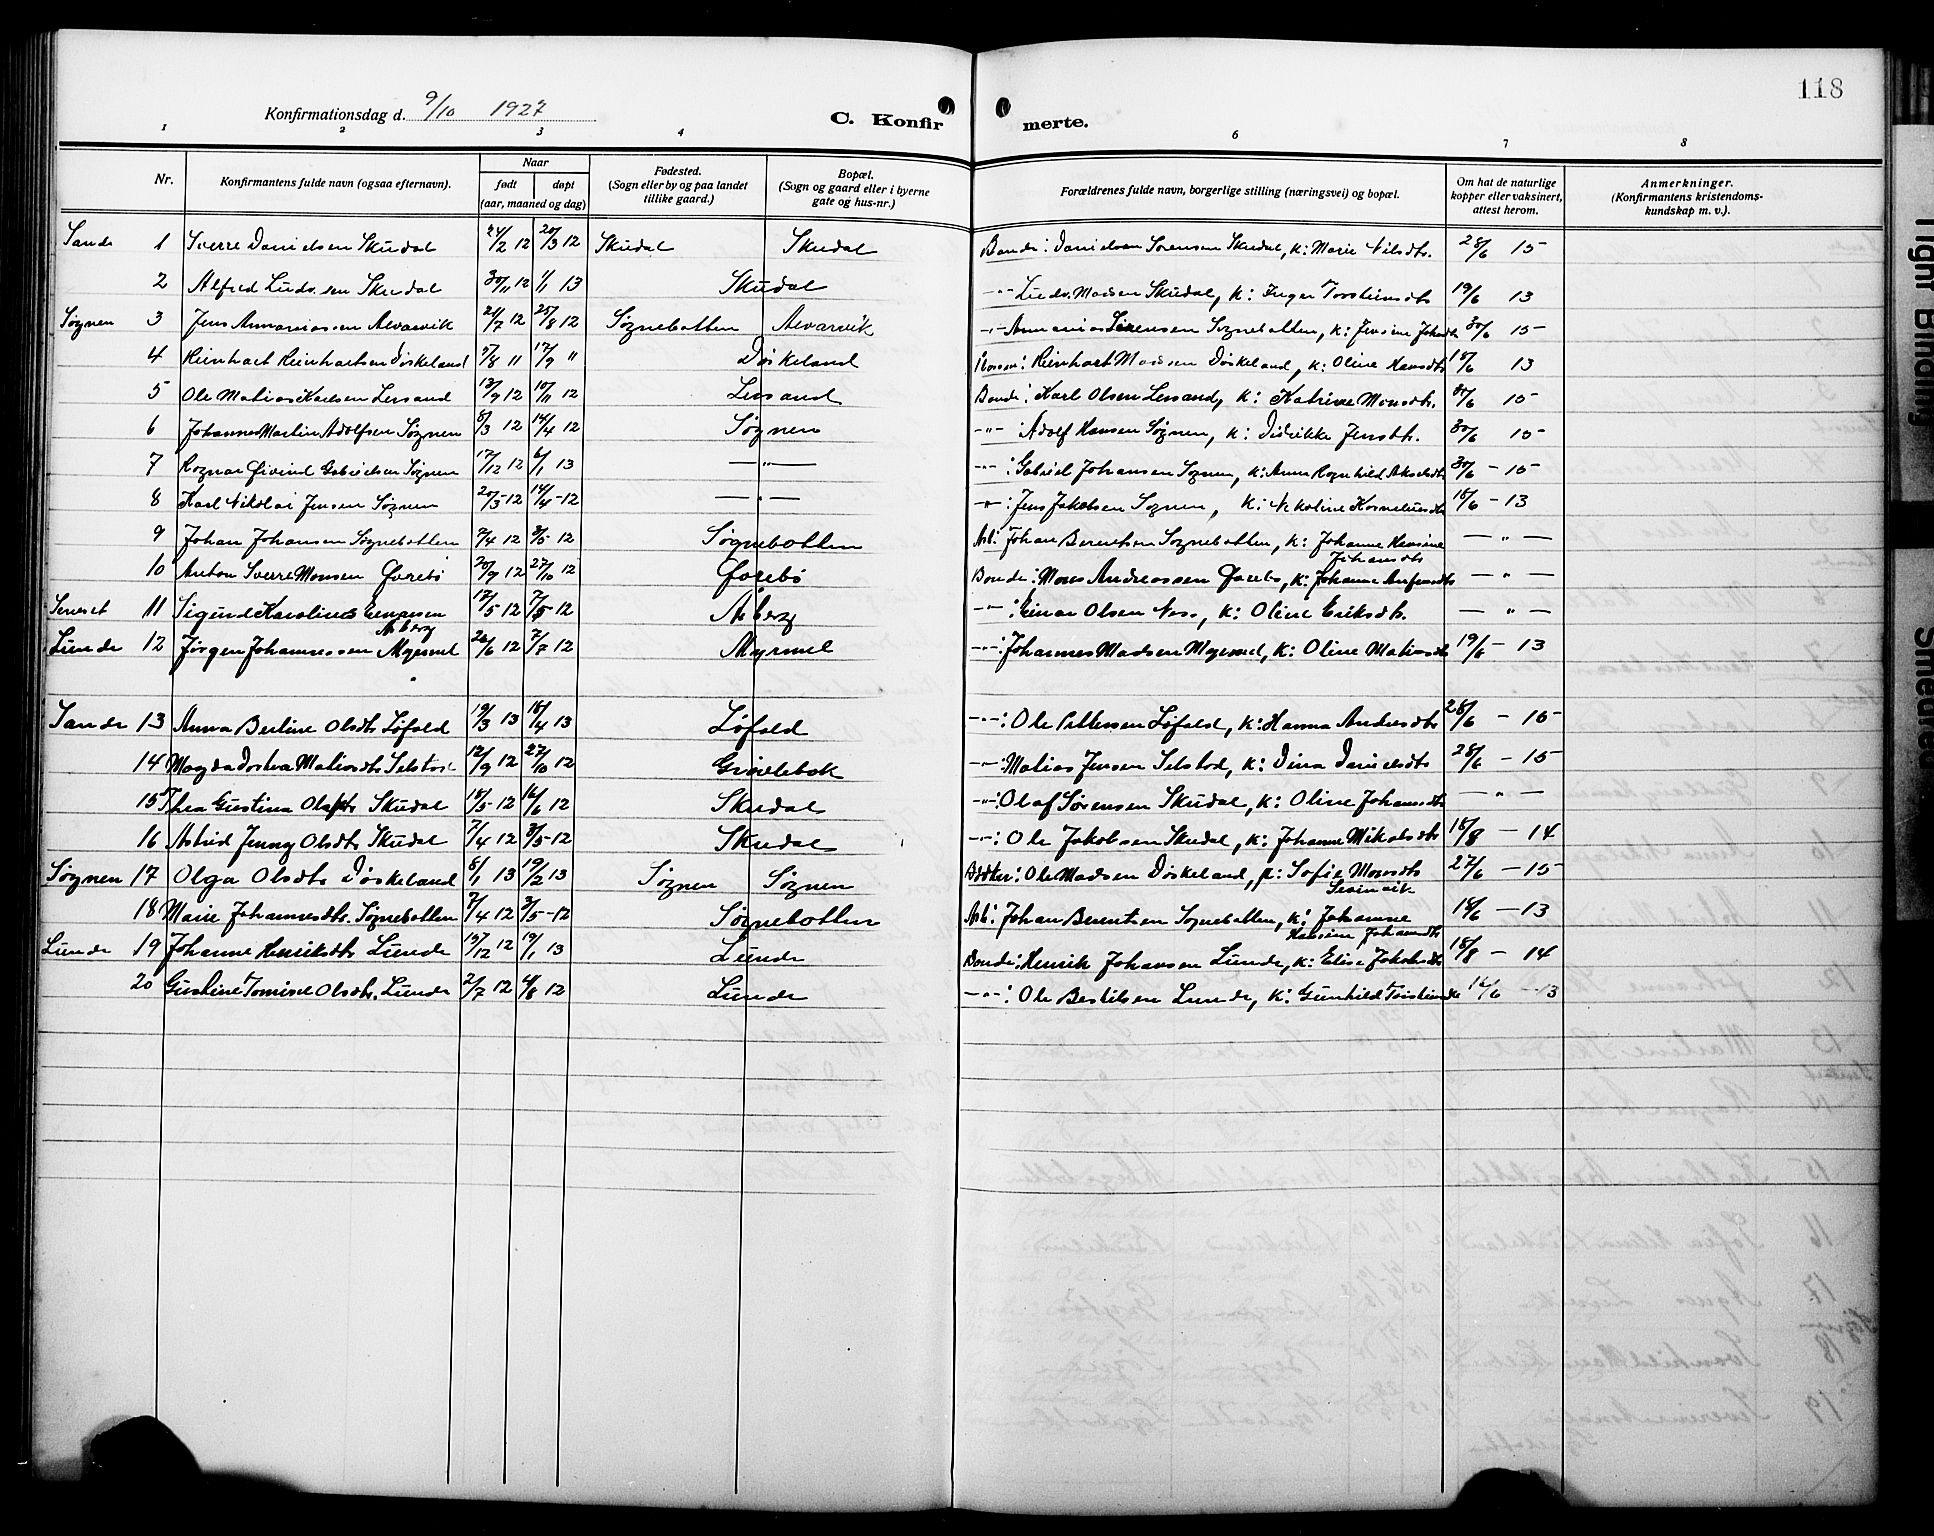 118
Konfirmationsdag d. 9/10 1927
C. Konfirmerte.
1 2 3 4 6 7 8
Nr. Konfirmantens fulde navn (ogsaa efternavn). Naar født døpt (aar, maaned og dag) Fødested. (Sogn eller by og paa landet tillike gaard.) Bopæl. (Sogn og gaard eller i byerne gate og hus-nr.) Forældrenes fulde navn, borgerlige stilling (næringsvei) og bopæl. Om hat de naturlige kopper eller vaksinert, attest herom. Anmerkninger. (Konfirmantens kristendomskundskap m. v.).
Sande 1 Sverre Danielsen Skudal 24/2 12 20/3 12 Skudal Skudal Bonde: Danielsen Sørensen Skudal, k: Marie Nilsdtr. 28/6 15
2 Alfred Ludv.sen Skudal 30/11 12 1/1 13 Skudal -"- Ludv. Madsen Skudal, k: Inger Torsteinsdtr 19/6 13
Søgnen 3 Jens Annaniassen Alvarvik 24/7 12 25/8 12 Søgnebotten Alvarvik -"- Annanias Sørensen Søgnebotten, k: Jensine Johsdtr 30/6 15
4 Reinhart Reinhartsen Døskeland 7/8 11 17/9 " Døskeland Reinhart Madsen Døskeland, k: Oline Hansdtr 18/6 13
5 Ole Matias Karlsen Lersand 13/9 12 10/11 12 Lersand Bonde: Karl Olsen Lersand, k: Katrine Monsdtr. 15
6 Johannes Martin Adolfsen Søgnen 8/3 12 14/4 12 Søgnen -"- Adolf Hansen Søgnen, k: Didrikke Jensdtr. 30/6 15
7 Ragnar Øivind Gabrielsen Søgnen 17/12 12 6/1 13 -"- -"-: Gabriel Johansen Søgnen, k: Anna Ragnhild Akseldtr 30/6 - 15
8 Karl Nikolai Jensen Søgnen 20/3 - 12 14/4 - 12 -"- -"-: Jens Jakobsen Søgnen, k: Nikoline Korneliusdtr 18/6 - 13
9 Johan Johansen Søgnebotten 7/4 12 3/5 - 12 Søgnebotten Arb: Johan Berentsen Søgnebotten, k: Johanne Hansine Johansdtr - " -
10 Anton Sverre Monsen Øvrebø 20/9 12 27/10 12 Øvrebø Bonde: Mons Andreassen Øvrebø, k: Johanne Anfinsdtr - " -
11 Sigurd Karolius Einarsen Åsberg 12/5 12 7/5 - 12 Åsberg -"-: Einar Olsen Nes, k: Oline Eriksdtr. - " -
Lunde 12 Jørgen Johannessen Myrmel 26/6 12 7/7 12 Myrmel -"-: Johannes Madsen Myrmel, k: Oline Matiasdtr 19/6 - 13
Sande 13 Anna Bertine Olsdtr Løfald 19/3 13 18/4 13 Løfald -"-: Ole Pettersen Løfald, k: Hanna Andersdtr 28/6 - 15
14 Magda Dortea Matiasdtr Selstad 12/9 12 27/10 12 Grimlebok -"-: Matias Jensen Selstad, k: Dina Danielsdtr 28/6 - 15
15 Thea Gustina Olafsdtr Skudal 15/5 - 12 16/6 12 Skudal -"-: Olaf Sørensen Skudal, k: Oline Johansdtr - " -
16 Astrid Jenny Olsdtr Skudal 7/4 12 3/5 - 12 Skudal -"-: Ole Jakobsen Skudal, k: Johanne Mikalsdtr 18/8 - 14
Søgnen 17 Olga Olsdtr Døskeland 8/1 13 19/2 13 Søgnen Søgnen Ole Madsen Døskeland, p: Sofie Monsdtr 27/6 - 15
18 Marie Johannesdtr. Søgnebotten 7/4 12 3/5 - 12 Søgnebotten Arb: Johan Berentsen Søgnebotten, k: Johanne Hansine Johansdtr 18/6 - 13
Lunde 19 Johanne Henriksdtr Lunde 12 19/1 13 Lunde Bonde: Henrik Johansen Lunde, k: Elise Jakobsdtr 18/8 - 14
20 Gustine Tomine Olsdtr. Lunde 2/7 12 4/8 12 Lunde -"-: Ole Bertilsen Lunde, k: Gunhild Torsteinsdtr 16/6 - 13
Tight Binding